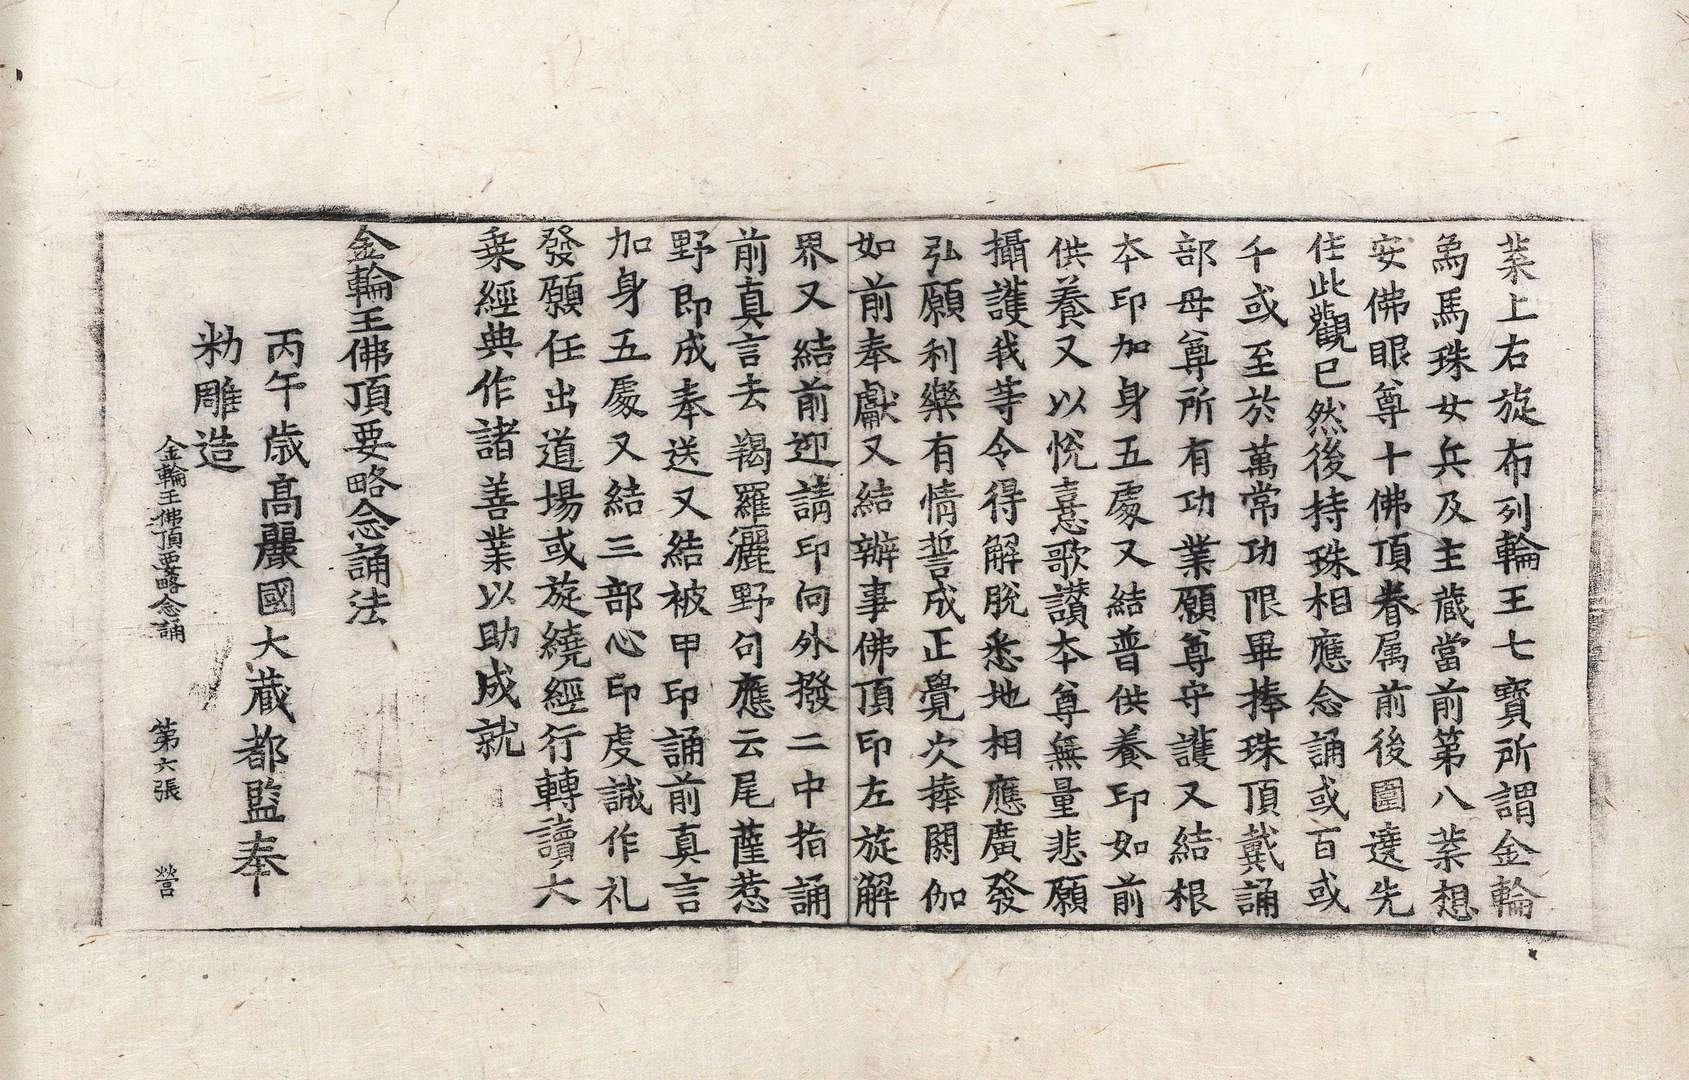 葉上右旋布列輪王七寶所謂金輪
象馬珠女兵及主藏當前第八葉想
安佛眼尊十佛頂眷属前後圍遶先
住此觀已然後持珠相應念誦或百或
千或至於萬常功限畢捧珠頂戴誦
部母尊所有功業願尊守護又結根
本印加身五處又結普供養印如前
供養又以悅意歌讚本尊無量悲願
攝護我等令得解脫悉地相應廣發
弘願利樂有情誓成正覺次捧閼伽
如前奉獻又結辦事佛頂印左旋解
界又結前迎請印向外撥二中指誦
前真言去羯羅灑野句應云尾薩惹
野即成奉送又結被甲印誦前真言
加身五處又結三部心印虔誠作礼
發願任出道場或旋繞經行轉讀大
乗經典作諸善業以助成就
金輪王佛頂要略念誦法
丙午歲高麗國大藏都監奉
勑雕造
金輪王佛頂要略念誦 第六張 營